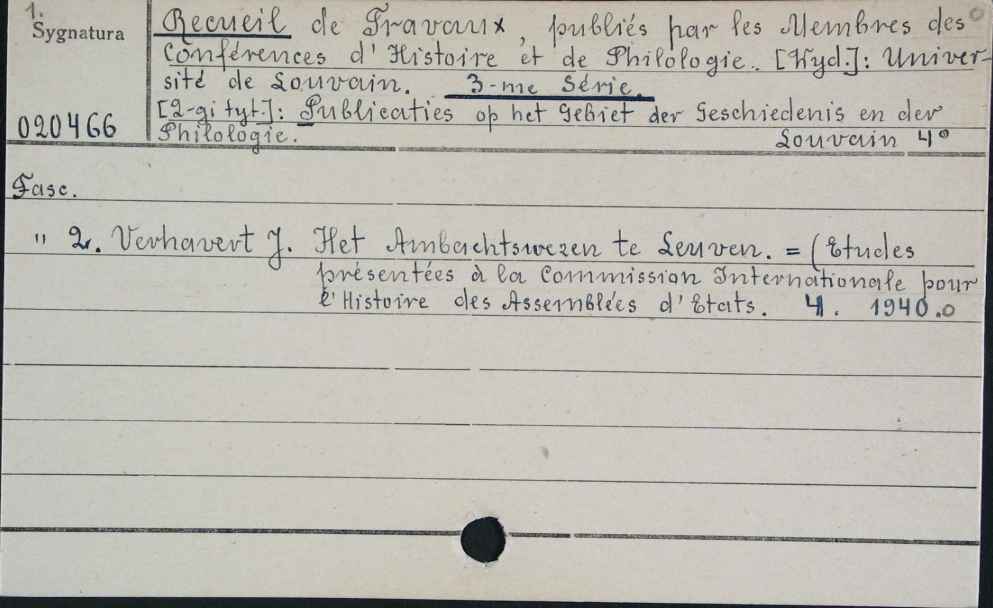 1.
Sygnatura
Recueil de Travaux, publiés par les Membres des
Conférences d'Histoire et de Philologie. [Wyd.]: Univer-
sité de Louvain. 3-me Série.
[2-gi tyt.]: Publicaties op het Gebiet der Geschiedenis en der
020466
Philologie. Louvain 4°
Fasc.
" 2. Verhavert J. Het Ambachtswezen te Leuven. = (Etudes
présentées à la Commission Internationale pour
l'Histoire des Assemblées d'Etats. 4. 1940.